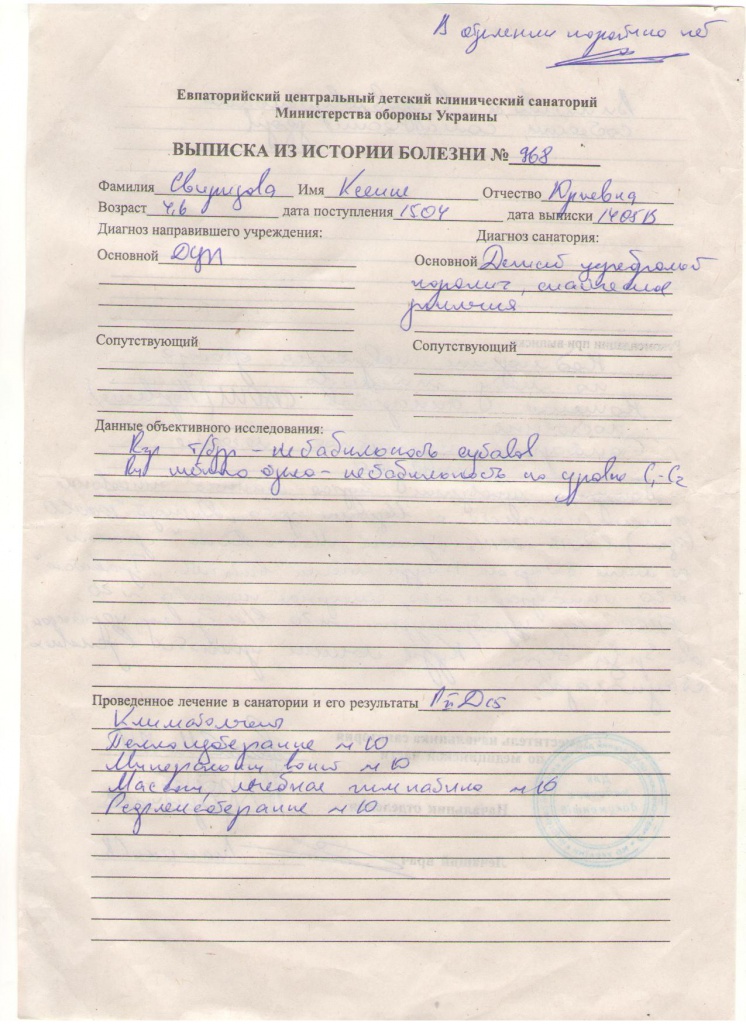 В отделении
Евпаторийский центральный детский клинический санаторий
Министерства обороны Украины
ВЫПИСКА ИЗ ИСТОРИИ БОЛЕЗНИ № 968
Фамилия Свиридова Имя Ксения Отчество Юрьевна
Возраст 4,6 дата поступления 15.04 дата выписки 14 05
Диагноз направившего учреждения: Диагноз санатория:
Основной ДЦП Основной Детский церебральный
паралич, спастическая
диплегия
Сопутствующий Сопутствующий
Данные объективного исследования:
т/бр - нестабильность суставов
шейного отдела - нестабильность на уровне C₁-C₂
Проведенное лечение в санатории и его результаты
Климатолечение
Пелоидотерапия №10
Минеральные ванны №10
Массаж, лечебная гимнастика №10
Рефлексотерапия №10